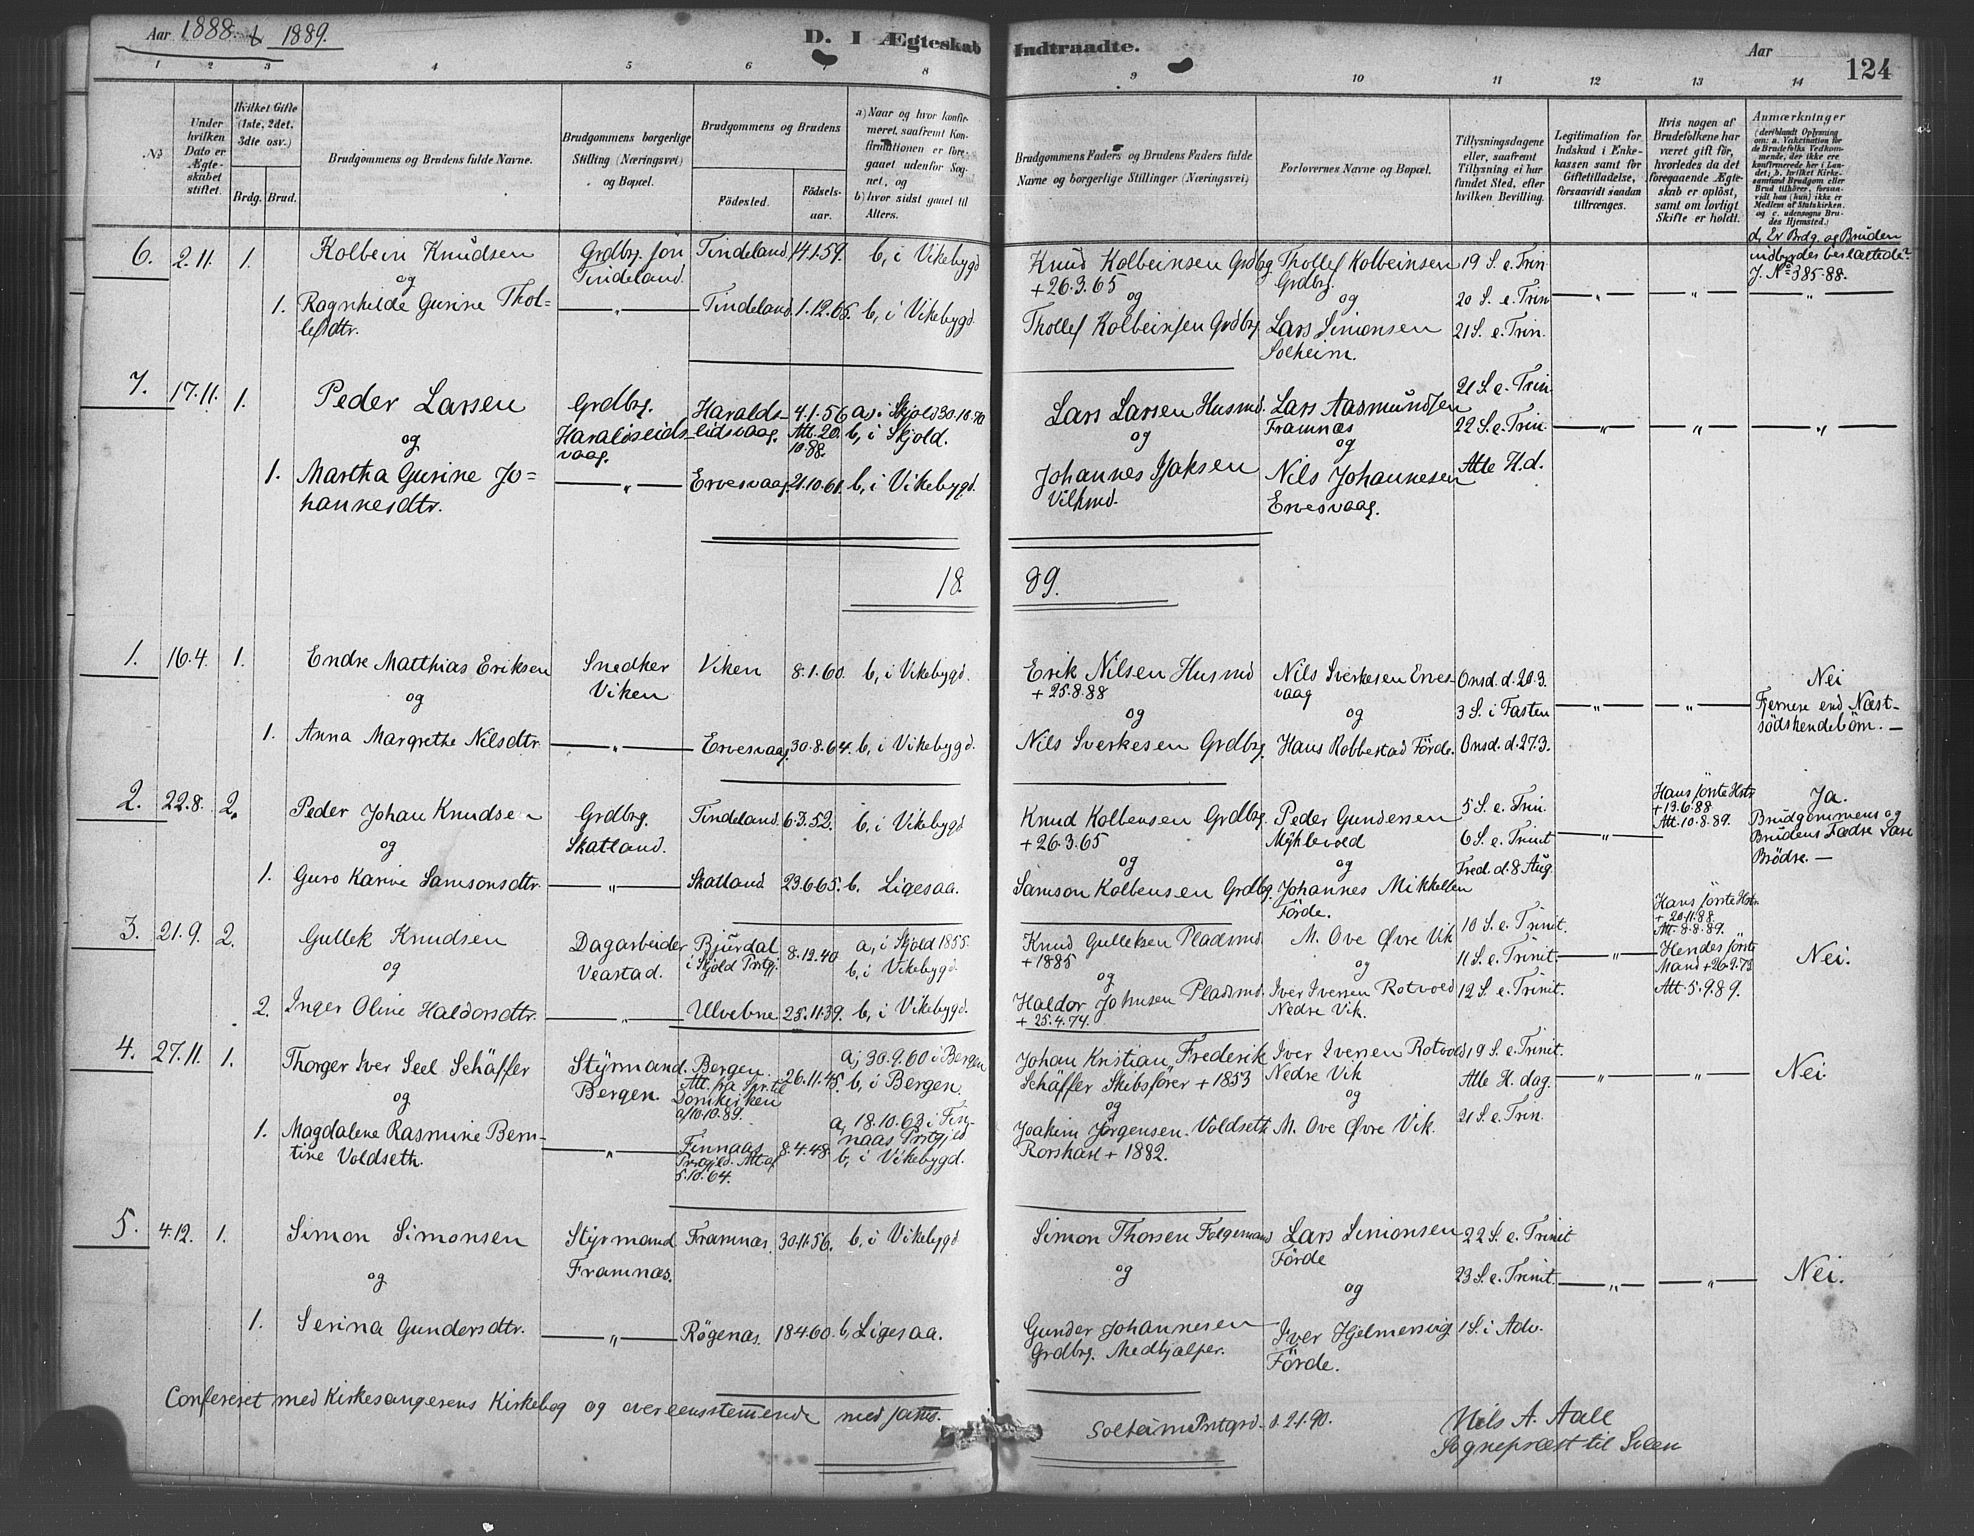 Aar 1888 & 1889.
D. I Ægteskab Indtraadte.
Aar
124
1 2 3 4 5 6 7 8 9 10 11 12 13 14
No.
Under hvilken Dato er Ægteskabet stiftet.
Hvilket Gifte (1ste, 2det, 3dte osv.)
Brdg. Brud.
Brudgommens og Brudens fulde Navne.
Brudgommens borgerlige Stilling (Næringsvei) og Bopæl.
Brudgommens og Brudens
Fødested.
Fødsels-aar.
a) Naar og hvor konfirmeret, saafremt Konfirmationen er foregaaet udenfor Sognet, og
b) hvor sidst gaaet til Alters.
Brudgommens Faders og Brudens Faders fulde Navne og borgerlige Stillinger (Næringsvei)
Forlovernes Navne og Bopæl.
Tillysningsdagene eller, saafremt Tillysning ei har fundet Sted, efter hvilken Bevilling.
Legitimation for Indskud i Enkekassen samt for Giftetilladelse, forsaavidt saadan tiltrænges.
Hvis nogen af Brudefolkene har været gift før, hvorledes da det foregaaende Ægteskab er opløst, samt om lovligt Skifte er holdt.
Anmærkninger
(deriblandt Oplysning om: a. Vakcination for de Brudefolks Vedkommende, der ikke ere konfirmerede her i Landet; b. hvilket Kirkesamfund Brudgom eller Brud tilhører, forsaavidt han (hun) ikke er Medlem af Statskirken, og c. udensogns Brudes Hjemsted.)
d, Er Brdg. og Bruden indbyrdes beslægtede?
6. 2.11. 1. Kolbein Knudsen Grdbrg. søn Tindeland. Tindeland 14.1.59. b, i Vikebygd Knud Kolbeinsen Grdbg +26.3.65 Thollef Kolbeinsen Grdbg. 19 S. e. Trin J. No 385-88.
og og og 20 S. e. Trin — „ — — „ — „
1. Ragnhilde Gurine Thollefsdtr. — „ — Tindeland 1.12.65. b, i Vikebygd Thollef Kolbeinsen Grdbg Lars Simonsen Solheim. 21 S. e. Trin.
7. 17.11. 1. Peder Larsen Grdbrg. Haraldseidsvaag. Haraldseidsvaag. 4.1.56 Att. 20.10.88. a, i Skjold 30.10.70 b, i Skjold. Lars Larsen Husmd. Lars Aasmundsen Framnæs 21 S. e. Trin.
og og og 22 S. e. Trin — „ — — „ — — „ —
1. Martha Gurine Johannesdtr. — „ — Ervesvaag. 21.10.61. b, i Vikebygd. Johannes Isaksen Vilkmd. Nils Johannesen Ervesvaag. Alle H. d.
18 89.
1. 16.4. 1. Endre Matthias Eriksen Snedker Viken Viken 8.1.60. b, i Vikebygd. Erik Nilsen Husmd +25.8.88 Nils Sverkesen Ervesvaag Onsd. d. 20.3. Nei
og og og 3 S. i Fasten — „ — — „ — Fjernere end Næstsödskendebörn. —
1. Anna Margrethe Nilsdtr. — „ — Ervesvaag. 30.8.64. b, i Vikebygd. Nils Sverkesen Grdbg. Hans Robbestad Förde. Onsd. d. 27.3.
2. 22.8. 2. Peder Johan Knudsen Grdbrg. Skatland. Tindeland 6.3.52. b, i Vikebygd Knud Kolbensen Grdbg +26.3.65 Peder Gundersen Myklevold 5 S. e. Trin. Hans förste Hstr +13.6.88 Att. 10.8.89. Ja.
og og og 6 S. e. Trinit — „ — Brudgommens og Brudens Fædre vare Brödre. —
1. Guro Karine Samsonsdtr. — „ — Skatland 23.6.65. b. Ligesaa. Samson Kolbensen Grdbg. Johannes Mikkelsen Förde. Fred. d. 8 Aug.
3. 21.9. 2. Gullek Knudsen Dagarbeider Veastad. Bjurdal i Skjold Prstgj. 8.12.40 a, i Skjold 1855. b, i Vikebygd. Knud Gulleksen Pladsmd +1885 M. Ove Øvre Vik 10 S. e. Trinit. Hans förste Hstr. + 20.11.88. Att. 8.8.89.
og og og 11 S. e. Trinit. — „ — Hendes förste Mand +26.2.73 Nei.
2. Inger Oline Haldorsdtr. — „ — Ulvebne 25.11.39. b, i Vikebygd. Haldor Johnsen Pladsmd. + 25.4.74. Iver Iversen Rotvold Nedre Vik. 12 S. e. Trinit. Att 5.9.89.
4. 27.11. 1. Thorger Iver Seel Schäffer Styrmand. Bergen. Bergen. Att. fra Sprt. til Domkirken a/10.10.89. 26.11.45. a, 30.9.60 i Bergen b, i Bergen. Johan Kristian Frederik Schäffer Skibsförer + 1853 Iver Iversen Rotvold Nedre Vik 19 S. e. Trinit. Nei
og og og Alle H. dag. — „ — — „ —
1. Magdalene Rasmine Berntine Voldseth. — „ — Finnaas Prstgjld. Att af 5.10.64. 8.4.48. a, 18.10.63 i Finnaas Prstgjld b, i Vikebygd. Joakim Jörgensen Voldseth Rorskarl + 1882. M. Ove Øvre Vik. 21 S. e. Trin.
5. 4.12. 1. Simon Simonsen Styrmand Framnæs. Framnæs. 30.11.56. b, i Vikebygd Simon Thorsen Folgemand Lars Simonsen Förde 22 S. e. Trinit
og og og 23 S. e. Trinit. — „ — — „ — Nei.
1. Serina Gundersdtr. — „ — Røgenæs. 18.4.60. b, Ligesaa. Gunder Johannesen Grdbrg. Medhjælper. Iver Hjelmervig Förde. 1 S. i Adv.
Confereret med Kirkesangerens Kirkebog og overensstemmende med samme.
Solheims Prstgrd. d. 2.1.90.
Nils A. Aall
Sognepræst til Sveen